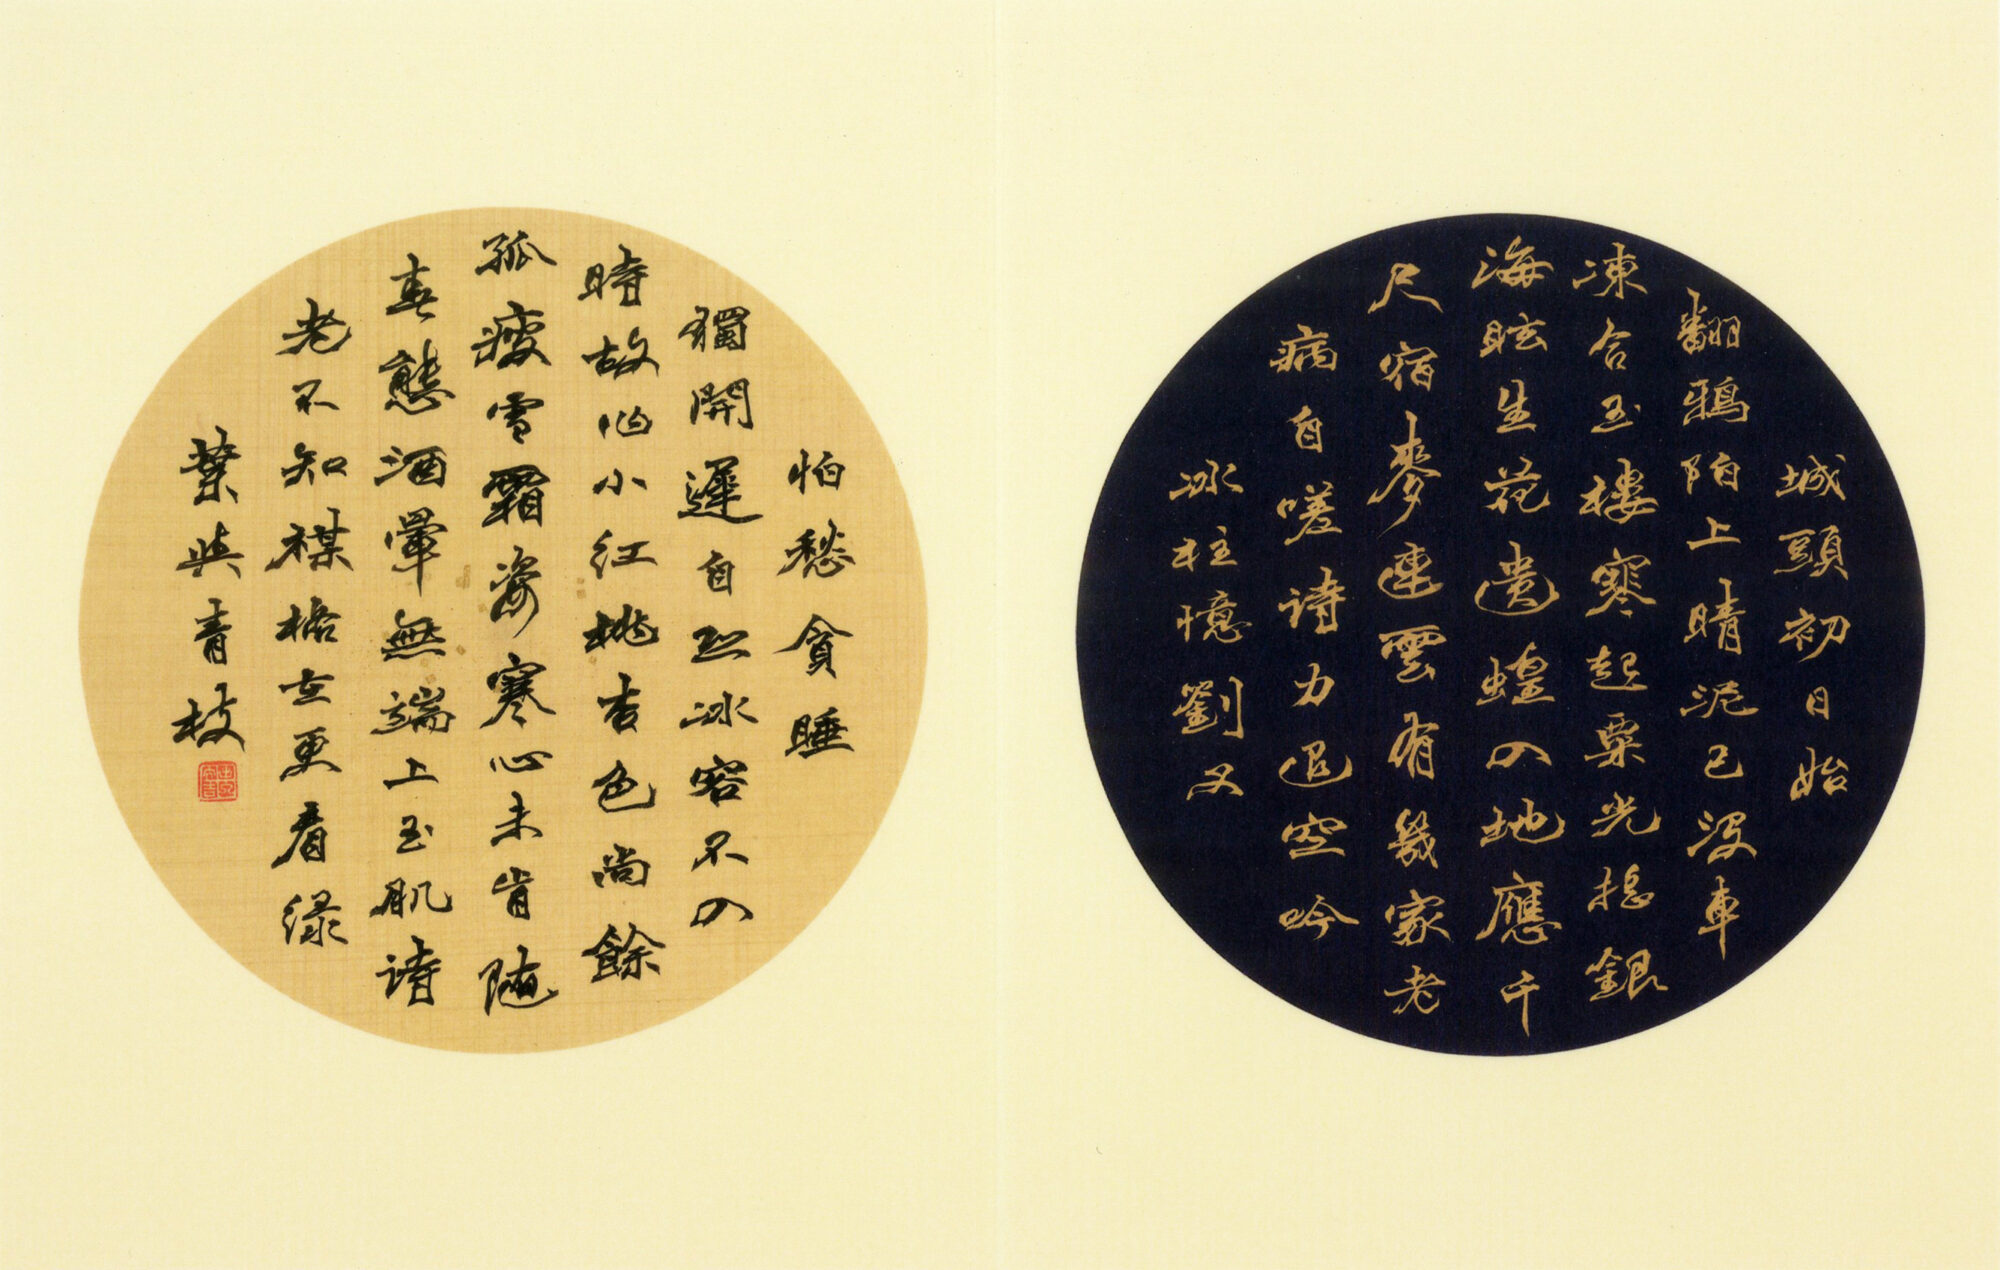 城頭初日始
翻鴉陌上晴泥已沒車
凍合玉樓寒起粟光搖銀
海眩生花遺蝗入地應千
尺宿麥連雲有幾家老
病自嗟詩力退空吟
冰柱憶劉叉
怕愁貪睡
獨開遲自恐冰容不入
時故作小紅桃杏色尚餘
孤瘦雪霜姿寒心未肯隨
春態酒暈無端上玉肌詩
老不知楳格在更看綠
葉與青枝